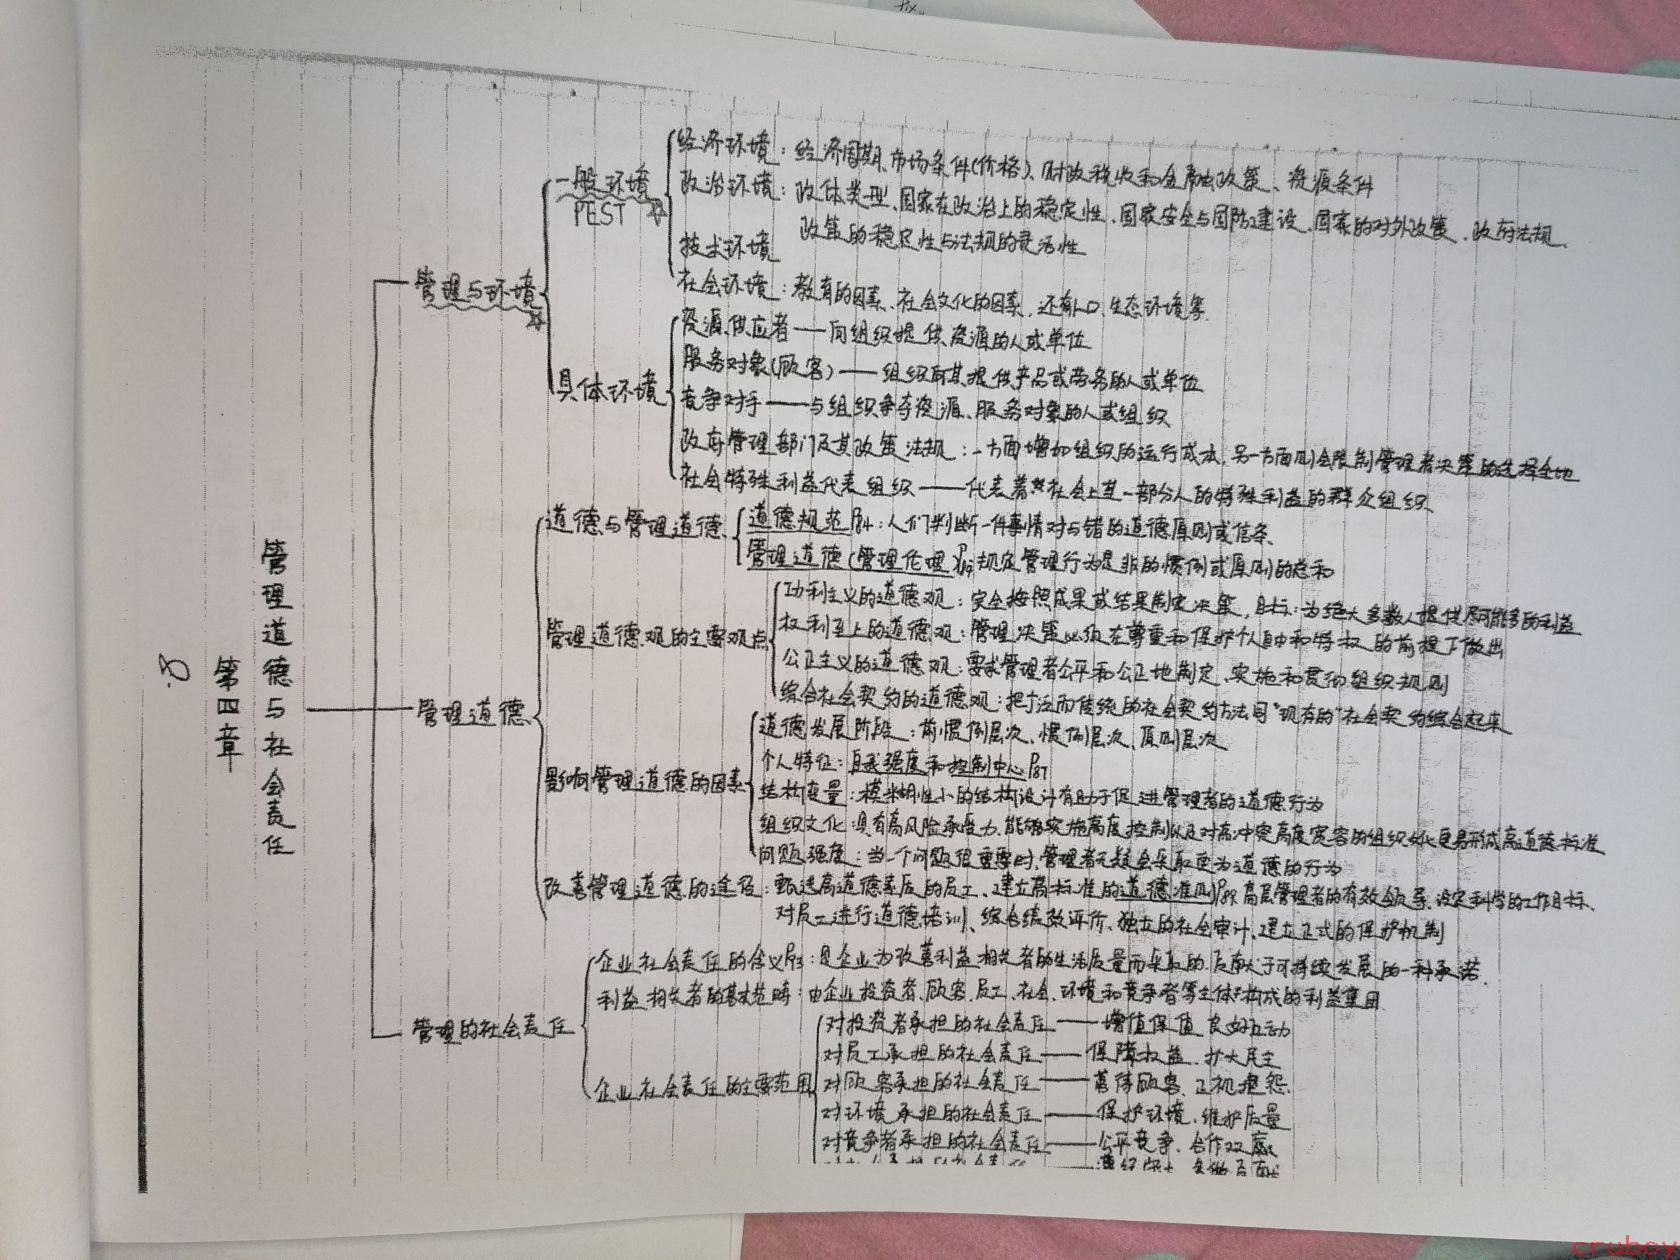 第四章
管理道德与社会责任
管理与环境
一般环境
PEST
经济环境：经济周期、市场条件(价格)、财政税收和金融政策、资源条件
政治环境：政体类型、国家在政治上的稳定性、国家安全与国防建设、国家的对外政策、政府法规、
政策的稳定性与法规的灵活性
技术环境
社会环境：教育的因素、社会文化的因素，还有人口、生态环境等
具体环境
资源供应者——向组织提供资源的人或单位
服务对象(顾客)——组织向其提供产品或劳务的人或单位
竞争对手——与组织争夺资源、服务对象的人或组织
政府管理部门及其政策法规：一方面增加组织的运行成本，另一方面则会限制管理者决策的选择余地
社会特殊利益代表组织——代表着社会上某一部分人的特殊利益的群众组织
管理道德
道德与管理道德
道德规范P84：人们判断一件事情对与错的道德原则或信条
管理道德(管理伦理)规定管理行为是非的惯例或原则的总和
管理道德观的主要观点
功利主义的道德观：完全按照成果或结果制定决策，目标：为绝大多数人提供尽可能多的利益
权利至上的道德观：管理决策必须在尊重和保护个人自由和特权的前提下做出
公正主义的道德观：要求管理者公平和公正地制定、实施和贯彻组织规则
综合社会契约的道德观：把广泛而传统的社会契约方法同"现有的"社会契约综合起来
影响管理道德的因素
道德发展阶段：前惯例层次、惯例层次、原则层次
个人特征：自我强度和控制中心P87
结构变量：模糊性小的结构设计有助于促进管理者的道德行为
组织文化：具有高风险承受力，能够实施高度控制以及对高冲突高度宽容的组织文化更易形成高道德标准
问题强度：当一个问题很重要时，管理者无疑会采取更为道德的行为
改善管理道德的途径：甄选高道德素质的员工、建立高标准的道德准则、高层管理者的有效领导、设定科学的工作目标、
对员工进行道德培训、综合绩效评价、独立的社会审计、建立正式的保护机制
管理的社会责任
企业社会责任的含义：是企业为改善利益相关者的生活质量而采取的、贡献于可持续发展的一种承诺
利益相关者的基本范畴：由企业投资者、顾客、员工、社会、环境和竞争者等主体构成的利益集团
企业社会责任的主要范围
对投资者承担的社会责任——增值保值 良好互动
对员工承担的社会责任——保障权益、扩大民主
对顾客承担的社会责任——善待顾客、正视抱怨
对环境承担的社会责任——保护环境、维护质量
对竞争者承担的社会责任——公平竞争、合作双赢
cruboy